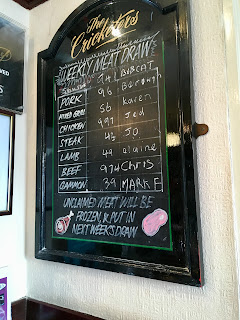 The
Cricketers
WEEKLY MEAT DRAW
PORK 96
MIXED GRILL 56 Karen
CHICKEN Jed
STEAK 43 JO
LAMB 49 elaine
BEEF 974 Chris
GAMMON 39 MARK F
UNCLAIMED MEAT WILL BE
FROZEN, & PUT IN
NEXT WEEKS DRAW